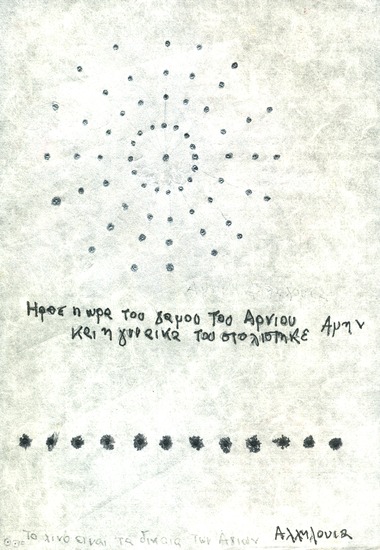 Ηρθε η ωρα του γαμου του Αρνιου Αμην
Και η γυναικα του στολιστηκε
Το λινο ειναι τα δικαια των Αγιων Αλληλουια